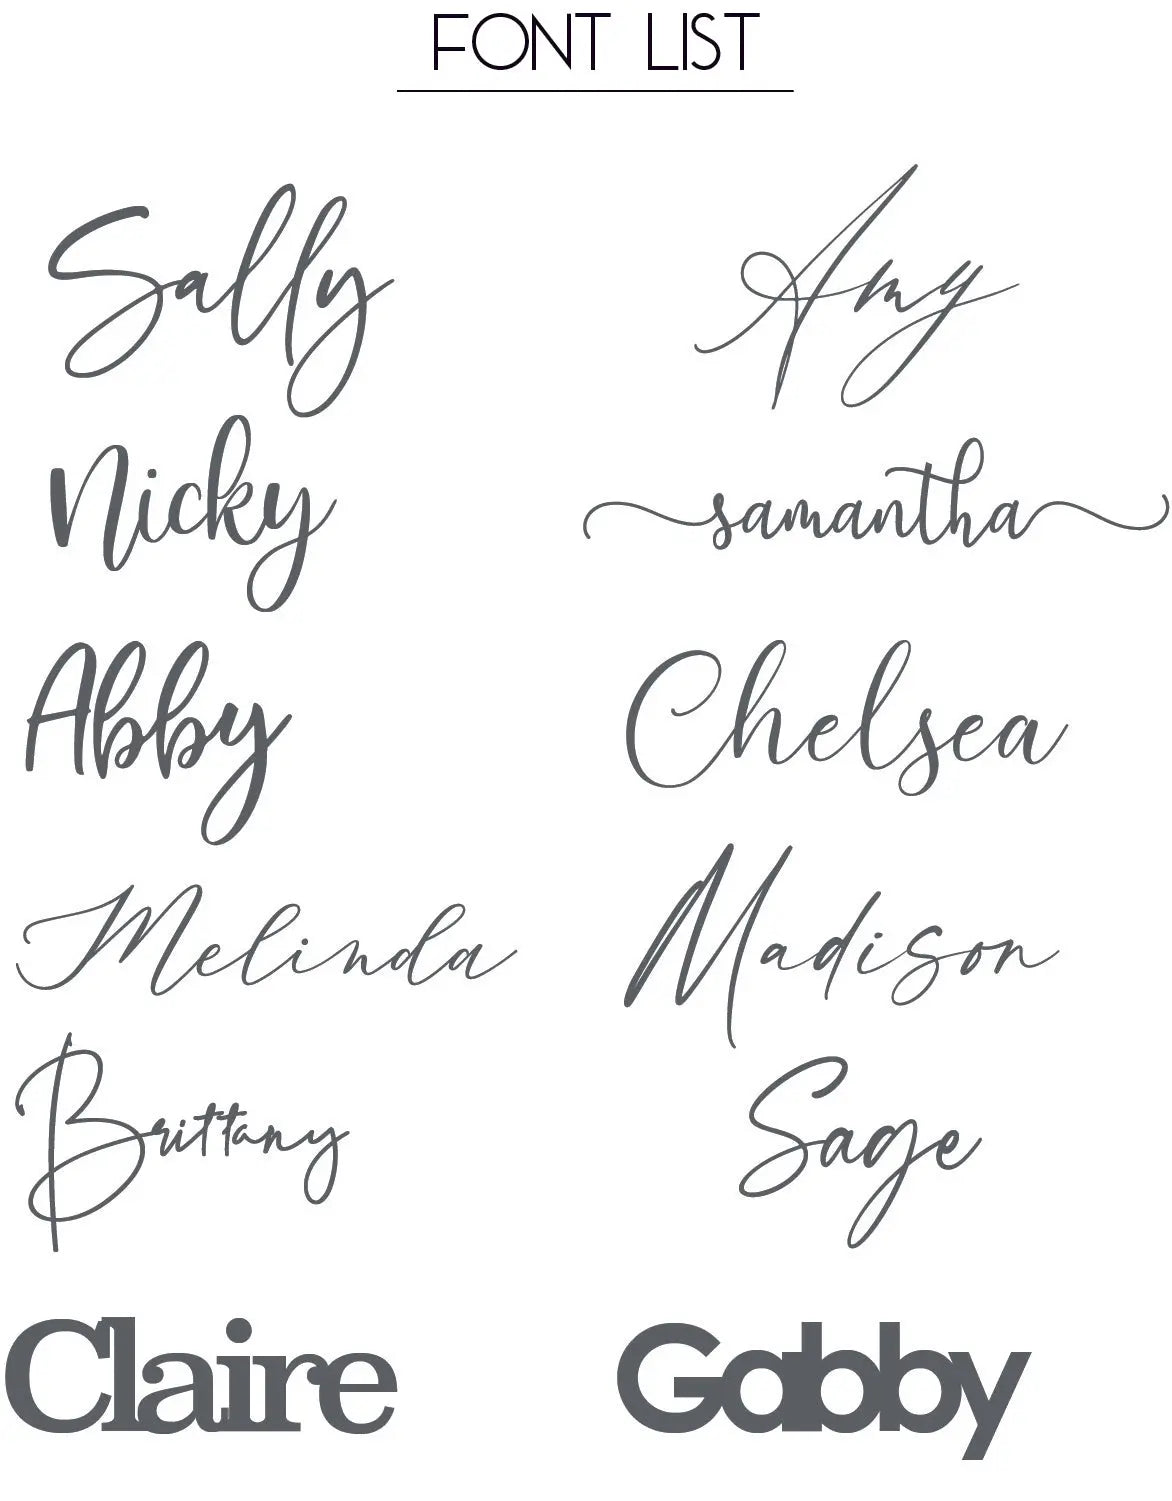 FONT LIST
Sally Amy
Nicky samantha
Abby Chelsea
Melinda Madison
Brittany Sage
Claire Gabby